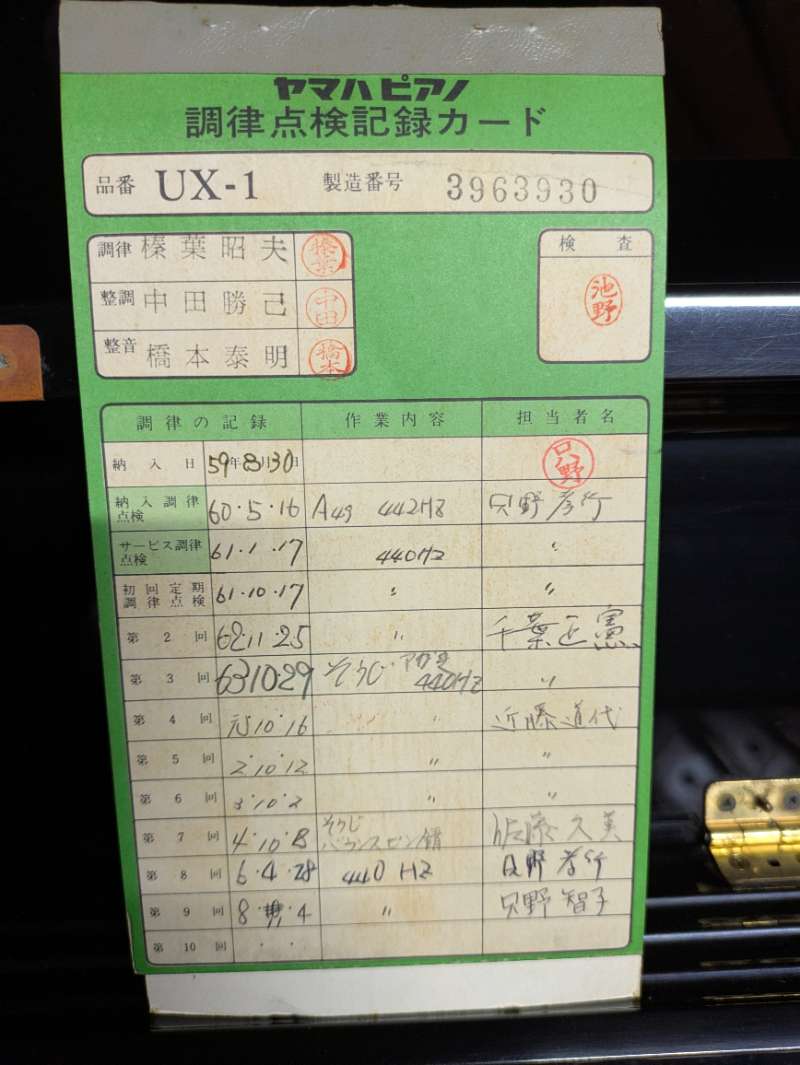 ヤマハピアノ
調律点検記録カード
品番 UX-1 製造番号 3963930
調律 榛葉昭夫 榛葉
整調 中田勝己 中田
整音 橋本泰明 橋本
検査
池野
調律の記録 作業内容 担当者名
納入日 59年8月30日 只野
納入調律点検 60・5・16 A49 442HZ 只野孝行
サービス調律点検 61・1・17 440HZ 〃
初回定期調律点検 61・10・17 〃 〃
第2回 62・11・25 〃 千葉正憲
第3回 63 10・29 そうじ 440HZ 〃
第4回 元 10・16 〃 近藤道代
第5回 2・10・12 〃 〃
第6回 3・10・2 〃 〃
第7回 4・10・8 そうじ バランスピン錆 佐藤久美
第8回 6・4・28 440 HZ 只野孝行
第9回 8・ ・4 〃 只野智子
第10回 ・ ・